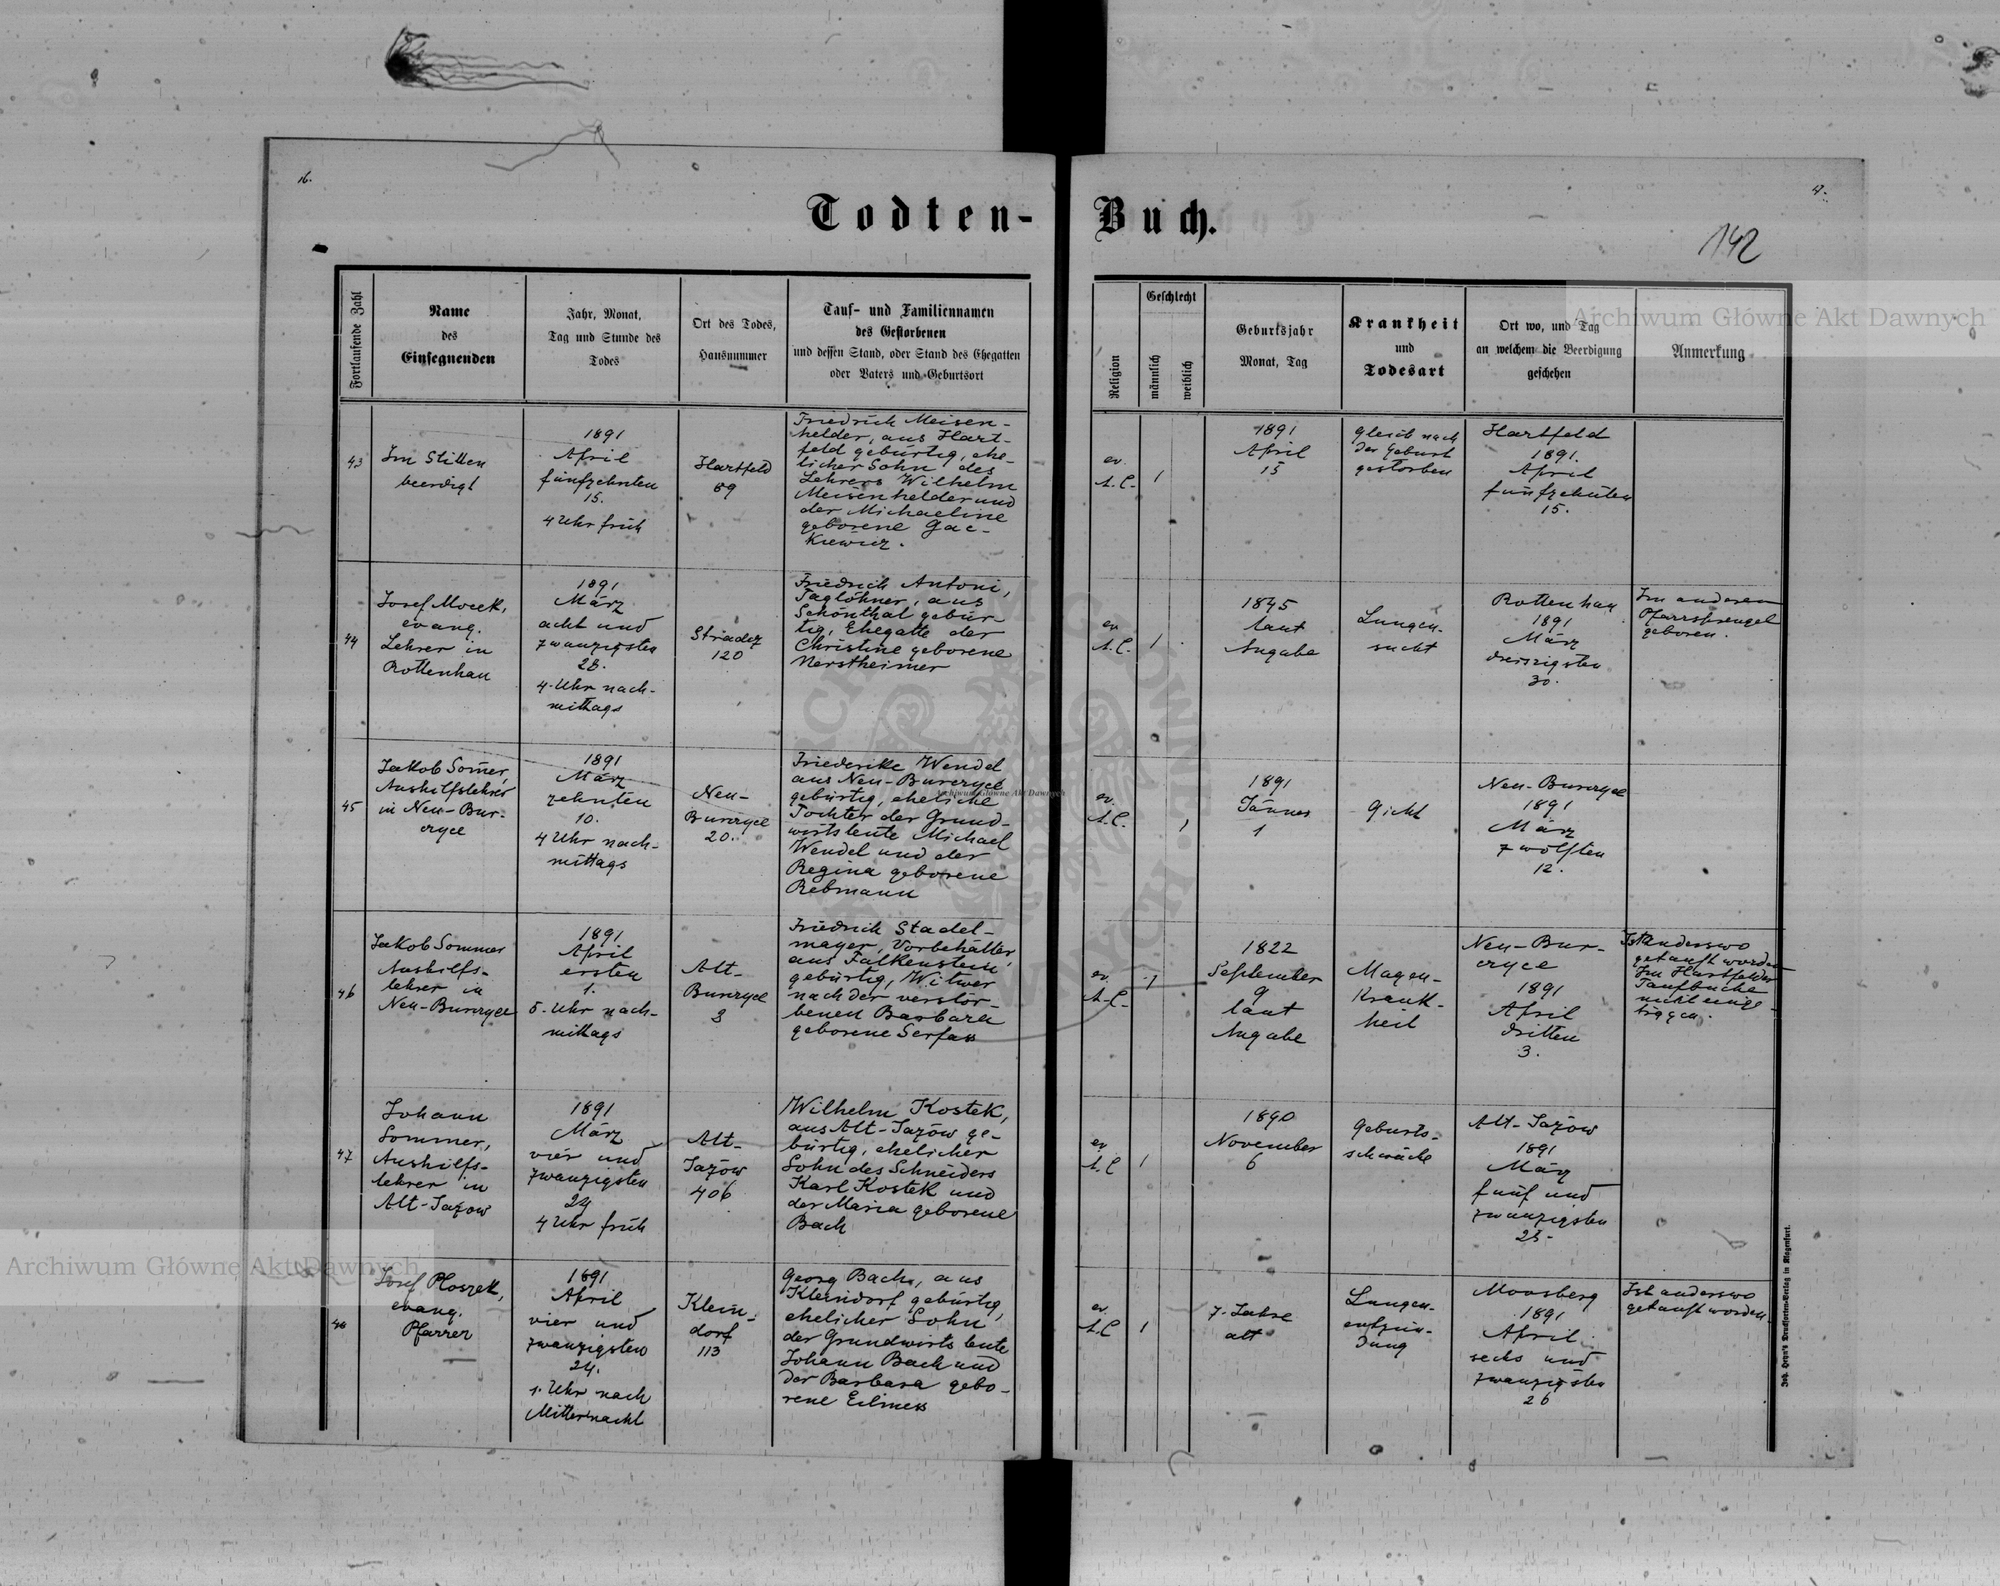 16.
Todten-
Fortlaufende Zahl
Name
des
Einsegnenden
Jahr, Monat,
Tag und Stunde des
Todes
Ort des Todes,
Hausnummer
Tauf- und Familiennamen
des Gestorbenen
und dessen Stand, oder Stand des Ehegatten
oder Vaters und Geburtsort
43
Im Stillen
beerdigt
1891
April
fünfzehnten
15.
4 Uhr früh
Hartfeld
89
Friedrich Meisen-
helder, aus Hart-
feld gebürtig, ehe-
licher Sohn des
Lehrers Wilhelm
Meisenhelder und
der Michaeline
geborene Gac-
kiewicz.
44
Josef Mocek,
evang.
Lehrer in
Rottenhan
1891
März
acht und
zwanzigsten
28.
4 Uhr nach-
mittags
Stradez
120
Friedrich Antoni,
Taglöhner, aus
Schönthal gebür-
tig, Ehegatte der
Christine geborene
Nerstheimer
45
Jakob Som̄er,
Aushilfslehrer
in Neu-Bur-
czyce
1891
März
zehnten
10.
4 Uhr nach-
mittags
Neu-
Burczyce
20.
Friederike Wendel
aus Neu-Burczyce
gebürtig, eheliche
Tochter der Grund-
wirtsleute Michael
Wendel und der
Regina geborene
Rebmann
46
Jakob Sommer
Aushilfs-
lehrer in
Neu-Burczyce
1891
April
ersten
1.
5. Uhr nach-
mittags
Alt-
Burczyce
3
Friedrich Stadel-
mayer, Vorbehälter
aus Falkenstein
gebürtig, Witwer
nach der verstor-
benen Barbara
geborene Serfass
47
Johann
Sommer,
Aushilfs-
lehrer in
Alt-Jazow
1891
März
vier und
zwanzigsten
24
4 Uhr früh
Alt-
Jazów
406
Wilhelm Kostek,
aus Alt-Jazów ge-
bürtig, ehelicher
Sohn des Schneiders
Karl Kostek und
der Maria geborene
Bach
48
Josef Ploszek,
evang.
Pfarrer
1891
April
vier und
zwanzigsten
24.
1. Uhr nach
Mitternacht
Klein-
dorf
113
Georg Bach, aus
Kleindorf gebürtig,
ehelicher Sohn
der Grundwirtsleute
Johann Bach und
der Barbara gebo-
rene Eilmess
Buch.
142
Religion
Geschlecht
männlich
weiblich
Geburtsjahr
Monat, Tag
Krankheit
und
Todesart
Ort wo, und Tag
an welchem die Beerdigung
geschehen
Anmerkung
ev.
A.C.
1
1891
April
15
gleich nach
der Geburt
gestorben
Hartfeld
1891.
April
fünfzehnten
15.
ev.
A.C.
1
1845
laut
Angabe
Lungen-
sucht
Rottenhan
1891
März
dreissigsten
30.
Im anderen
Pfarrsprengel
geboren.
ev.
A.C.
1
1891
Jänner
1
Gicht
Neu-Burczyce
1891
März
zwölften
12.
ev.
A.C.
1
1822
September
9
laut
Angabe
Magen-
krank-
heit
Neu-Bur-
czyce
1891
April
dritten
3.
Ist anderswo
getauft worden
Im Hartfelder
Taufbuche
nicht einge-
tragen.
ev.
A.C.
1
1890
November
6
Geburts-
schwäche
Alt-Jazów
1891
März
fünf und
zwanzigsten
25.
ev.
A.C.
1
7. Jahre
alt
Lungen-
entzün-
dung
Moosberg
1891
April
sechs und
zwanzigsten
26
Ist anderswo
getauft worden.
Joh. Heyn's Drucksorten-Verlag in Klagenfurt.
Archiwum Główne Akt Dawnych
Archiwum Główne Akt Dawnych
Archiwum Główne Akt Dawnych